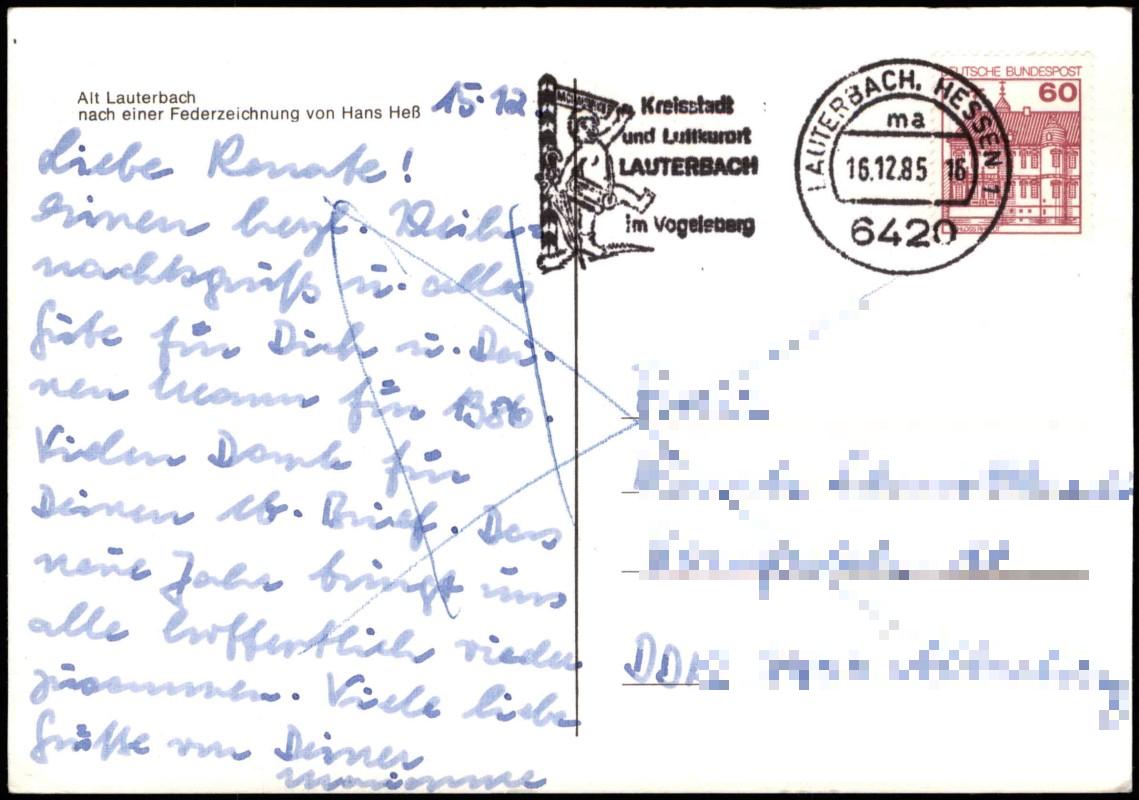 Alt Lauterbach
nach einer Federzeichnung von Hans Heß
15.12.
Liebe Renate!
Einen herzl. Weih-
nachtsgruß u. alles
Gute für Dich u. Dei-
nen Mann für 1986.
Vielen Dank für
Deinen lb. Brief. Das
neue Jahr bringt uns
alle hoffentlich wieder
zusammen. Viele liebe
Grüße von Deiner
Marianne
Kreisstadt
und Luftkurort
LAUTERBACH
im Vogelsberg
LAUTERBACH, HESSEN 1
ma
16.12.85 16
6420
DEUTSCHE BUNDESPOST
60
DDR